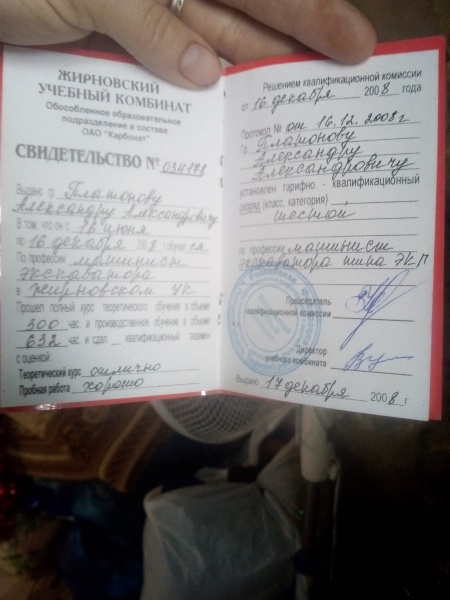 ЖИРНОВСКИЙ
УЧЕБНЫЙ КОМБИНАТ
Обособленное образовательное
подразделение в составе
ОАО "Карбонат"
СВИДЕТЕЛЬСТВО №
Выдано гр. Платонову
Александру Александровичу
В том, что он с 16 июня
по 16 декабря 2008 обучался
По профессии машинист
экскаватора
в Жирновском УК
Прошел полный курс теоретического обучения в объеме
300 час и производственное обучение в объеме
632 час и сдал квалификационный экзамен
с оценкой:
Теоретический курс отлично
Пробная работа хорошо
Решением квалификационной комиссии
от 16 декабря 2008 года
Протокол № от 16.12.2008г
Гр. Платонову
Александру
Александровичу
установлен тарифно - квалификационный
разряд (класс, категория)
шестой
по профессии машинист
экскаватора типа ЭКГ
Председатель
квалификационной комиссии
Директор
учебного комбината
Выдано 17 декабря 2008 г